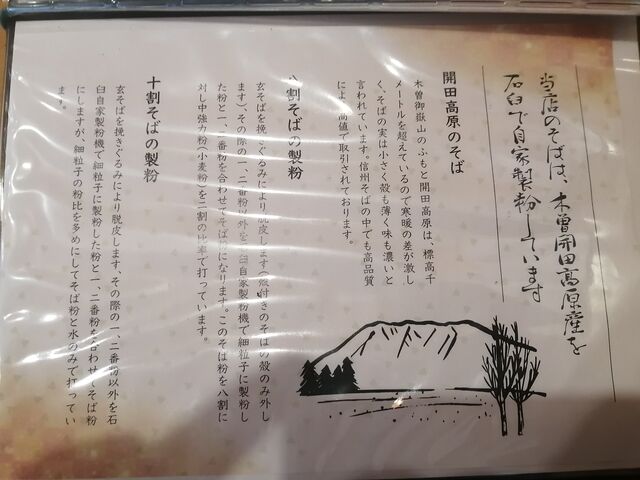 当店のそばは、木曽開田高原産を
石臼で自家製粉しています
開田高原のそば
木曽御嶽山のふもと開田高原は、標高千
メートルを超えているので寒暖の差が激し
く、そばの実は小さく殻も薄く味も濃いと
言われています。信州そばの中でも高品質
高値で取引されております。
八割そばの製粉
玄そばを挽きぐるみにより脱皮します(殻付きのそばの殻のみ外し
ます)その際の一、二番粉以外を石臼自家製粉機で細粒子に製粉し
た粉と一、二番粉を合わせてそば粉になります。このそば粉を八割に
対し中強力粉(小麦粉)を二割の比率で打っています。
十割そばの製粉
玄そばを挽きぐるみにより脱皮します、その際の一、二番粉以外を石
臼自家製粉機で細粒子に製粉した粉と一、二番粉を合わせてそば粉
にしますが、細粒子の粉比を多めにしてそば粉と水のみで打ってい
ます。